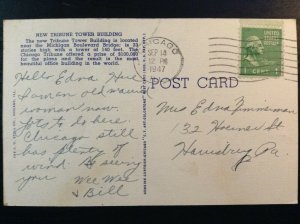 NEW TRIBUNE TOWER BUILDING
The new Tribune Tower Building is located
near the Michigan Boulevard Bridge; is 33
stories high with a tower of 140 feet. The
Chicago Tribune offered a prize of $100,000
for the plans and the result is the most
beautiful office building in the world.
CHICAGO
SEP 13
12 PM
1947
1 CENT 1
POST CARD
Hello Edna Here
I am an old
woman now.
to be here
Chicago still
has plenty of
wind. Be seeing
you Wee Wee
& Bill
Mrs Edna Zimmerman
132 St
Pa